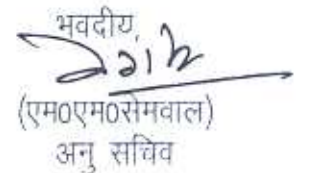 भवदीय,
(एम0एम0सेमवाल)
अनु सचिव